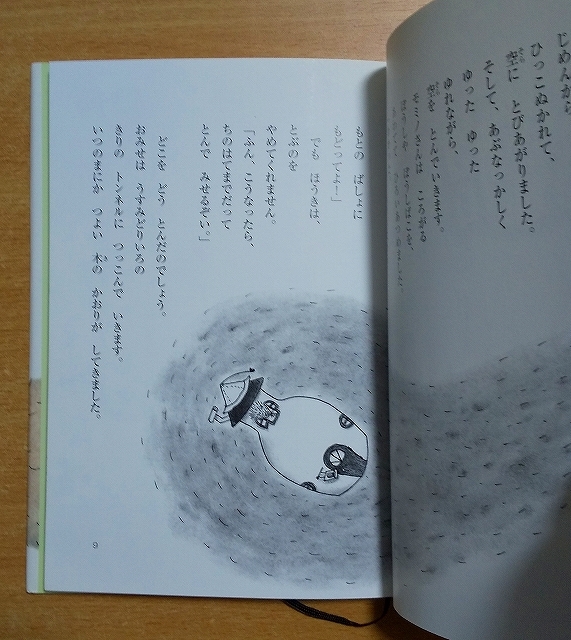 じめんから
ひっこぬかれて、
空に とびあがりました。
そして、あぶなっかしく
ゆった ゆった
ゆれながら、
空を とんでいきます。
モミノさんは ころがる
もとの ばしょに
もどってよー」
でも ほうきは、
とぶのを
やめてくれません。
「ふん、こうなったら、
ちのはてまでだって
とんで みせるぞい。」
どこを どう とんだのでしょう。
おみせは うすみどりいろの
きりの トンネルに つっこんで いきます。
いつのまにか つよい 木の かおりが してきました。
9